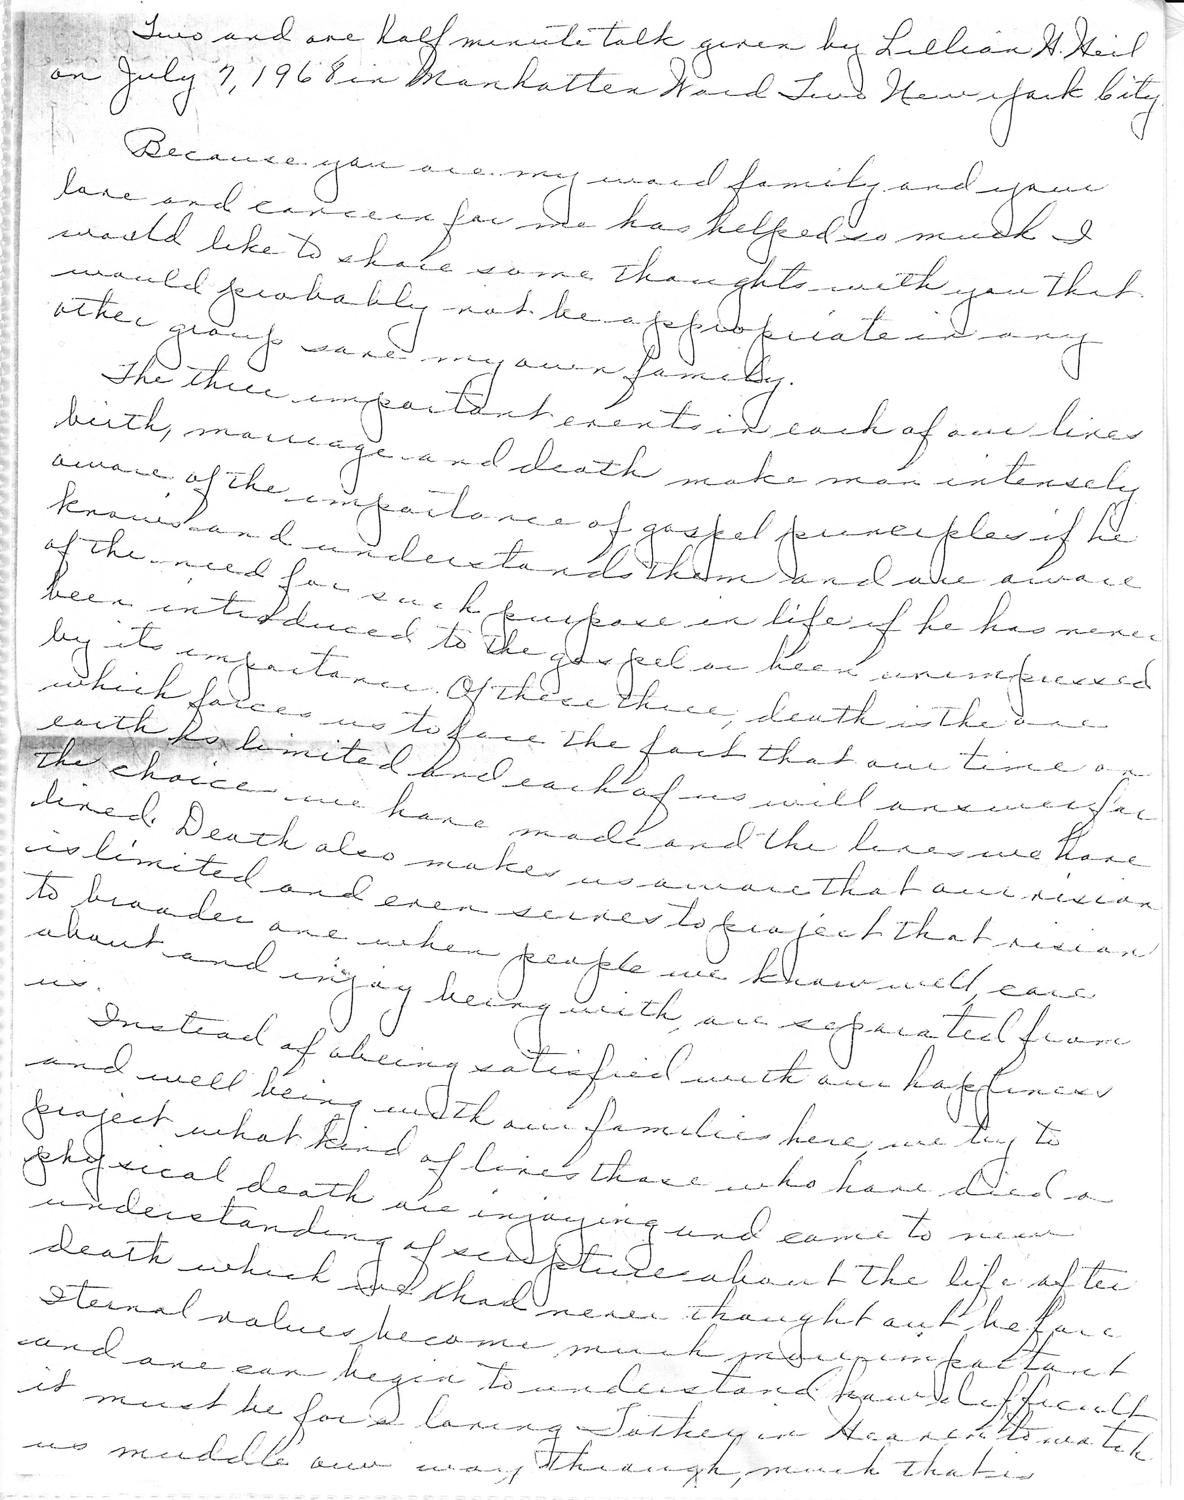 Two and one half minute talk given by Lillian H. Heil
on July 7, 1968 in Manhatten Ward Two New York City
Because you are my ward family and your
love and concern for me has helped so much I
would like to share some thoughts with you that
would probably not be appropriate in any
other group save my own family.
The three important events in each of our lives
birth, marriage and death make man intensely
aware of the importance of gospel principles if he
knows and understands them and are aware
of the need for such purpose in life if he has never
been introduced to the gospel or been unimpressed
by its importance. Of these three, death is the one
which forces us to face the fact that our time on
earth is limited and each of us will answer for
the choice we have made and the lives we have
lived. Death also makes us aware that our vision
is limited and even serves to project that vision
to broader one when people we know well, care
about and injoy being with, are separated from
us.
Instead of being satisfied with our happiness
and well being with our families here, we try to
project what kind of lives those who have died a
physical death are injoying and come to new
understanding of scriptures about the life after
death which we had never thought out before
Iternal values become much more important
and one can begin to understand how difficult
it must be for a loving Father in Heaven to watch
us muddle our way through, much that is